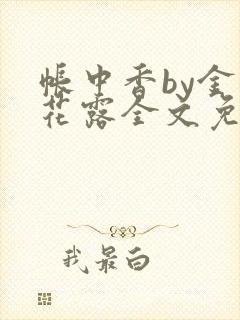 帐中香by金
花露全文免
我最白